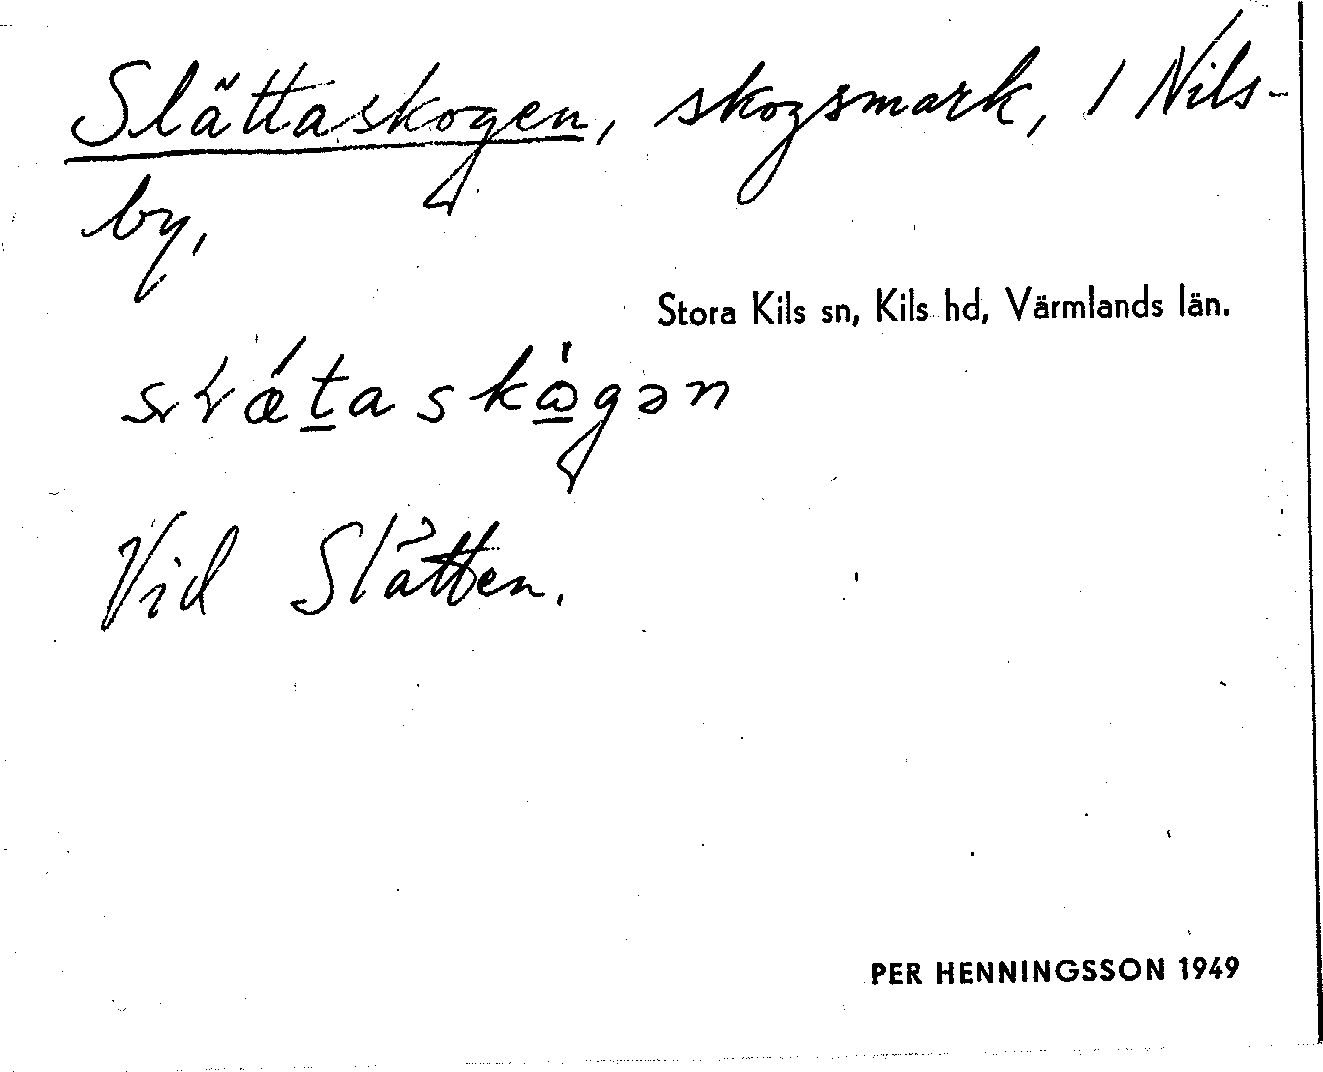 Slättaskogen, skogsmark, 1 Nils-
by,
Stora Kils sn, Kils hd, Värmlands län.
Vid Slätten.
PER HENNINGSSON 1949